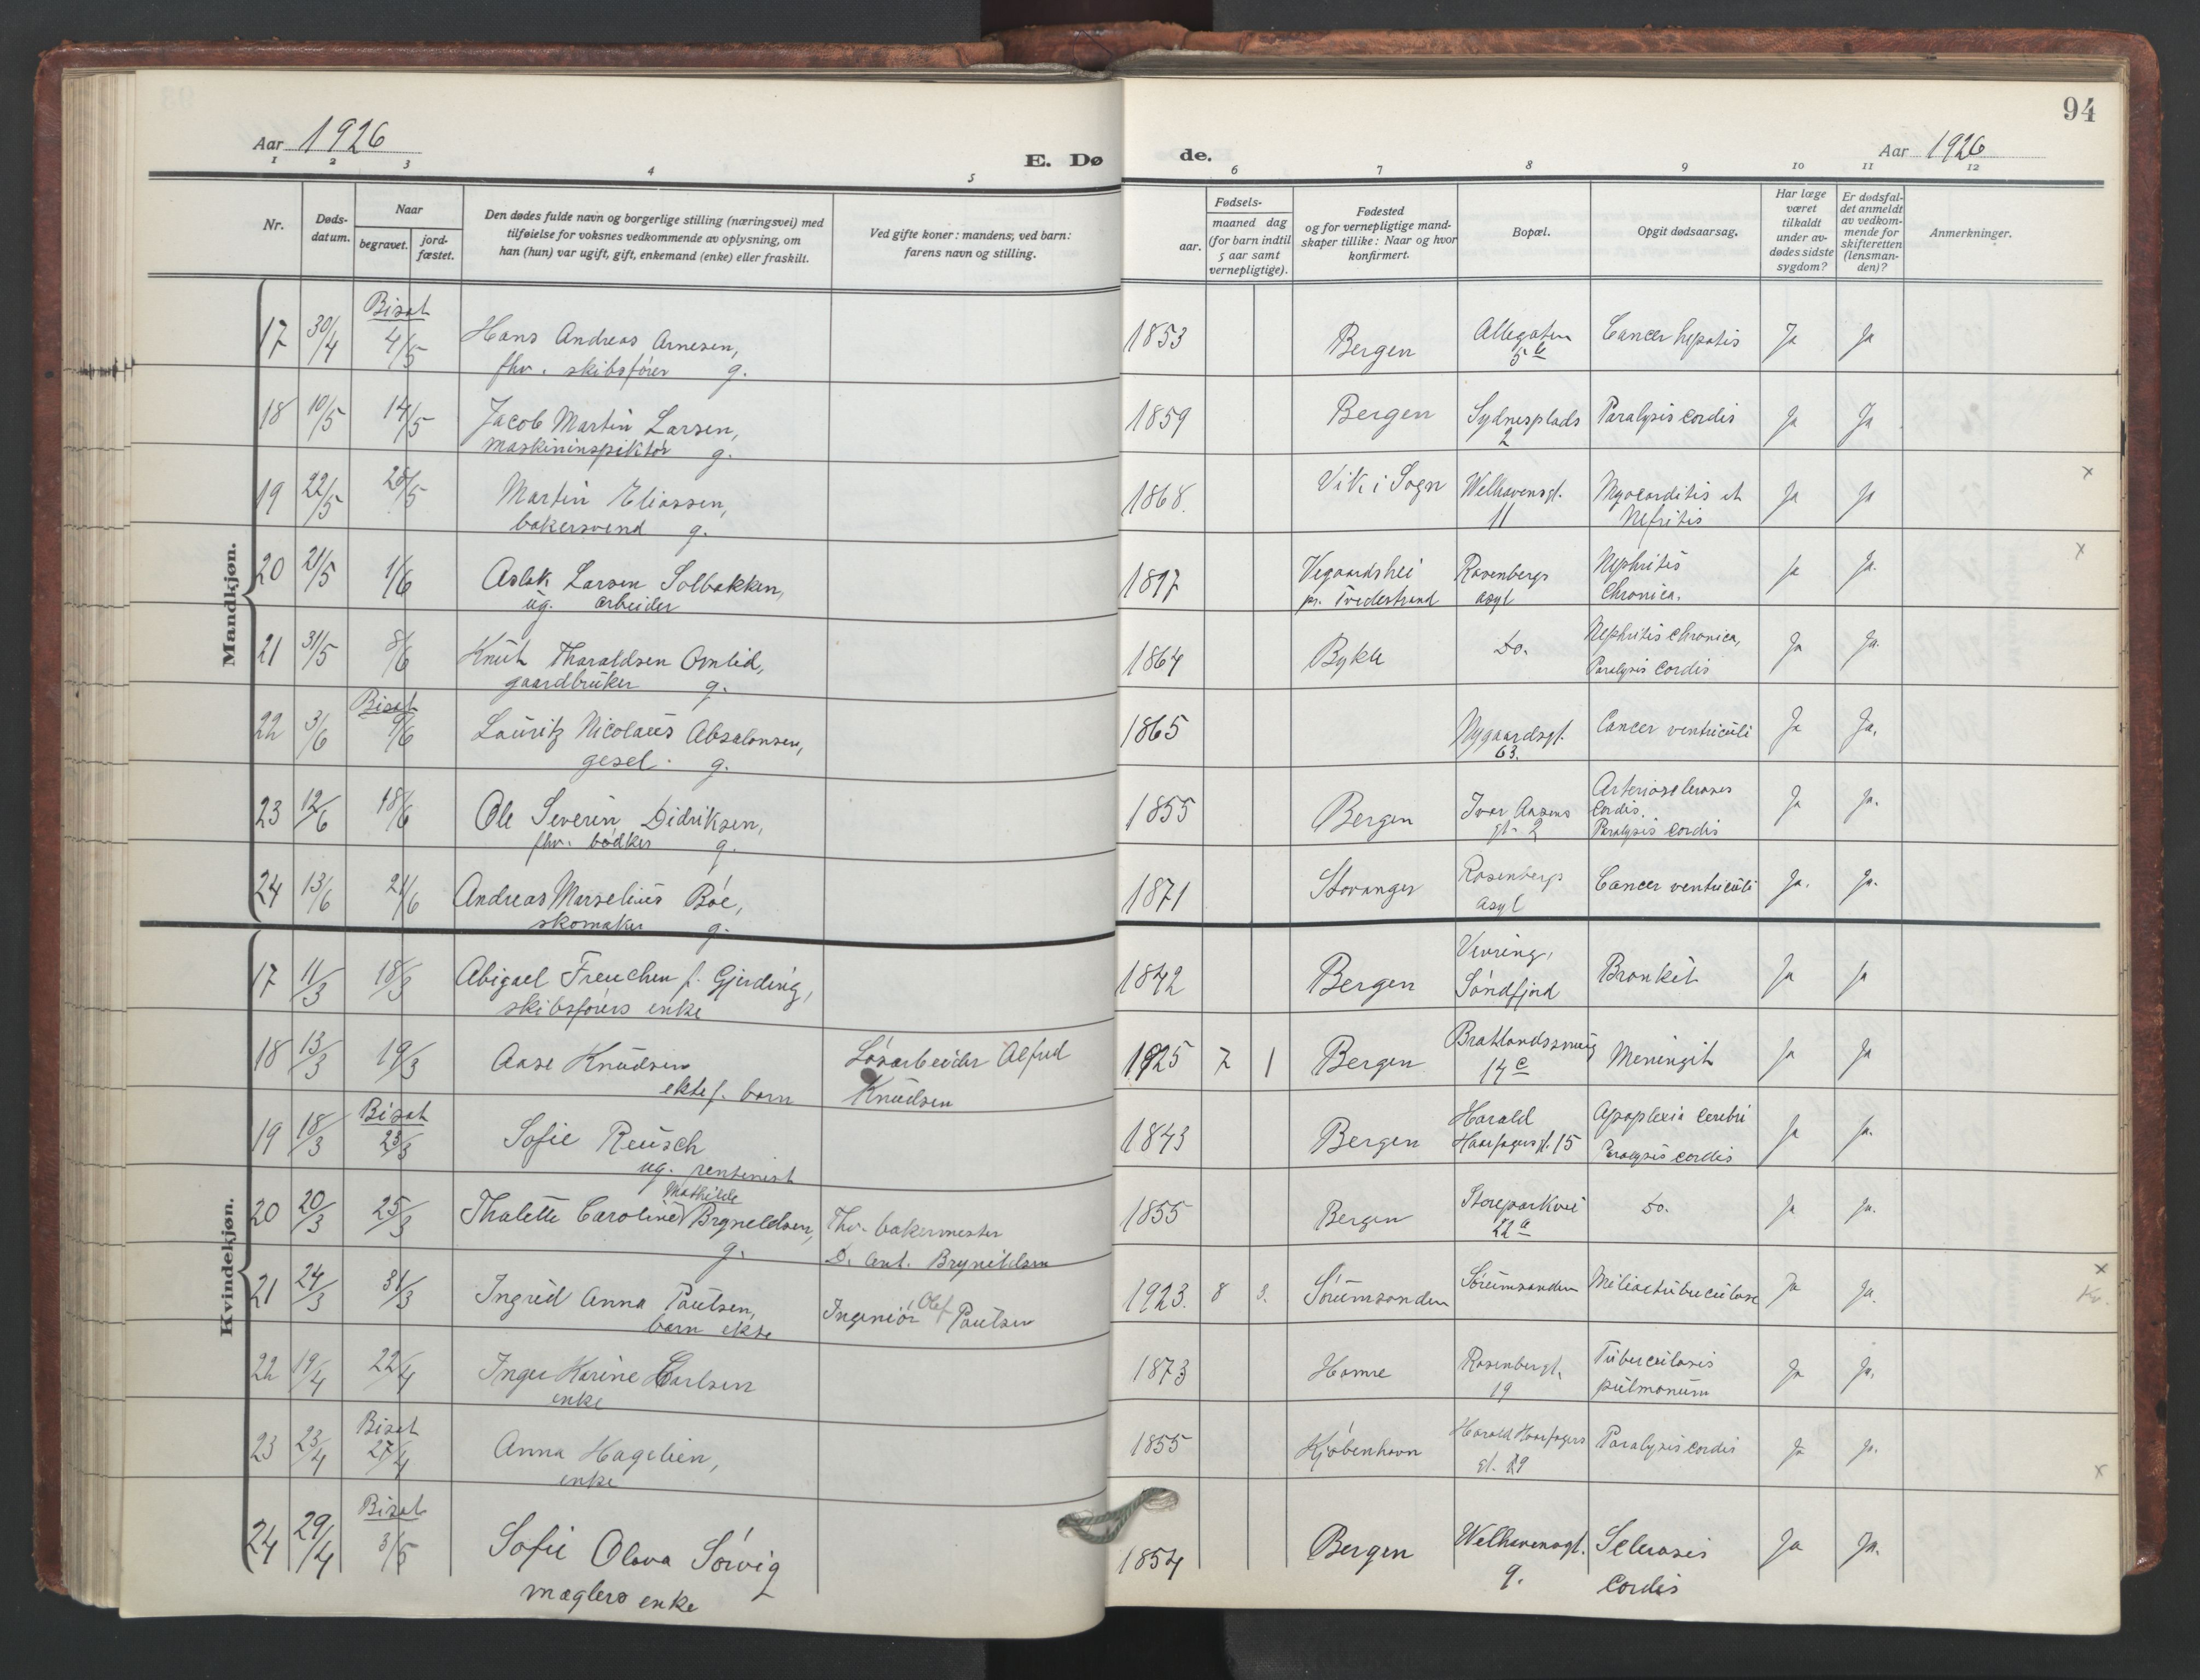 94
Aar 1926
E. Dø
de.
Aar 1926
1 2 3 4 5 6 7 8 9 10 11 12
Nr.
Døds-
datum.
Naar
begravet.
jord-
fæstet.
Den dødes fulde navn og borgerlige stilling (næringsvei) med
tilføielse for voksnes vedkommende av oplysning, om
han (hun) var ugift, gift, enkemand (enke) eller fraskilt.
Ved gifte koner: mandens; ved barn:
farens navn og stilling.
Fødsels-
aar.
maaned dag
(for barn indtil
5 aar samt
vernepligtige).
Fødested
og for vernepligtige mand-
skaper tillike: Naar og hvor
konfirmert.
Bopæl.
Opgit dødsaarsag.
Har læge
været
tilkaldt
under av-
dødes sidste
sygdom?
Er dødsfal-
det anmeldt
av vedkom-
mende for
skifteretten
(lensman-
den)?
Anmerkninger.
Mandkjøn.
Bisat
17 30/4 4/5 Hans Andreas Arnesen, 1853 Bergen Allegaten Cancer hepatis Ja Ja
fhv. skibsfører g. 5 b
18 10/5 14/5 Jacob Martin Larsen, 1859 Bergen Sydnesplads Paralysis cordis Ja Ja
maskininspektør g. 2
19 22/5 28/5 Martin Eliassen, 1868. Vik i Sogn Welhavensgt. Myocarditis et Ja Ja x
bakersvend g. 11 Nefritis
20 21/5 1/6 Aslak Larsen Solbakken, 1897 Vegaardshei Rosenbergs Nephritis Ja Ja. x
ug. arbeider pr. Tvedestrand asyl Chronica.
21 31/5 8/6 Knut Tharaldsen Omlid, 1864 Bykle Do. Nephritis chronica, Ja Ja.
gaardbruker g. Paralysis cordis
Bisat
22 3/6 9/6 Lauritz Nicolaus Absalonsen, 1865 Nygaardsgt. Cancer ventriculi Ja Ja.
gesel. g. 63.
23 12/6 18/6 Ole Severin Didriksen, 1855 Bergen Ivar Aasens Arteriosclerosis Ja Ja.
fhv. bødker g. gt. 2 Cordis.
Paralysis cordis
24 13/6 21/6 Andreas Marselius Bøe, 1871 Stavanger Rosenbergs Cancer ventriculi Ja. Ja.
skomaker g. asyl
Kvindekjøn.
17 11/3 18/3 Abigael Freuchen f. Gjerding, 1842 Bergen Vevring, Bronkit Ja Ja
skibsførers enke Søndfjord
18 13/3 19/3 Aase Knudsen Løsarbeider Alfred 1925 7 1 Bergen Bratlandssmug Meningit Ja Ja
ektef. barn Knudsen 14 c
Bisat
19 18/3 23/3 Sofie Reusch 1843 Bergen Harald Apoplexia cerebri Ja Ja.
ug. rentenist Haarfagersgt. 15 Paralysis cordis
Mathilde
20 20/3 25/3 Thalette Caroline Brynildsen, Fhv. bakermester 1855 Bergen Storeparkvei Do. Ja Ja.
g. D. Ant. Brynildsen 22 a
21 24/3 31/3 Ingrid Anna Paulsen, Ingeniør Olaf Paulsen 1923. 8 3. Sørumsanden Sørumsanden Miliærtuberculose Ja Ja. x
barn ekte
22 19/4 22/4 Inger Karine Carlsen 1873 Hamre Rosenbergt. Tuberculosis Ja Ja.
enke 19 pulmonum
Bisat
23 23/4 27/4 Anna Hagelien, 1855 Kjøbenhavn Harald Haarfagers Paralysis cordis Ja Ja.
enke gt. 29 x
Bisat
24 29/4 3/5 Sofie Olava Sørvig 1854 Bergen Welhavensgt. Sclerosis Ja Ja.
mæglers enke 9. Cordis